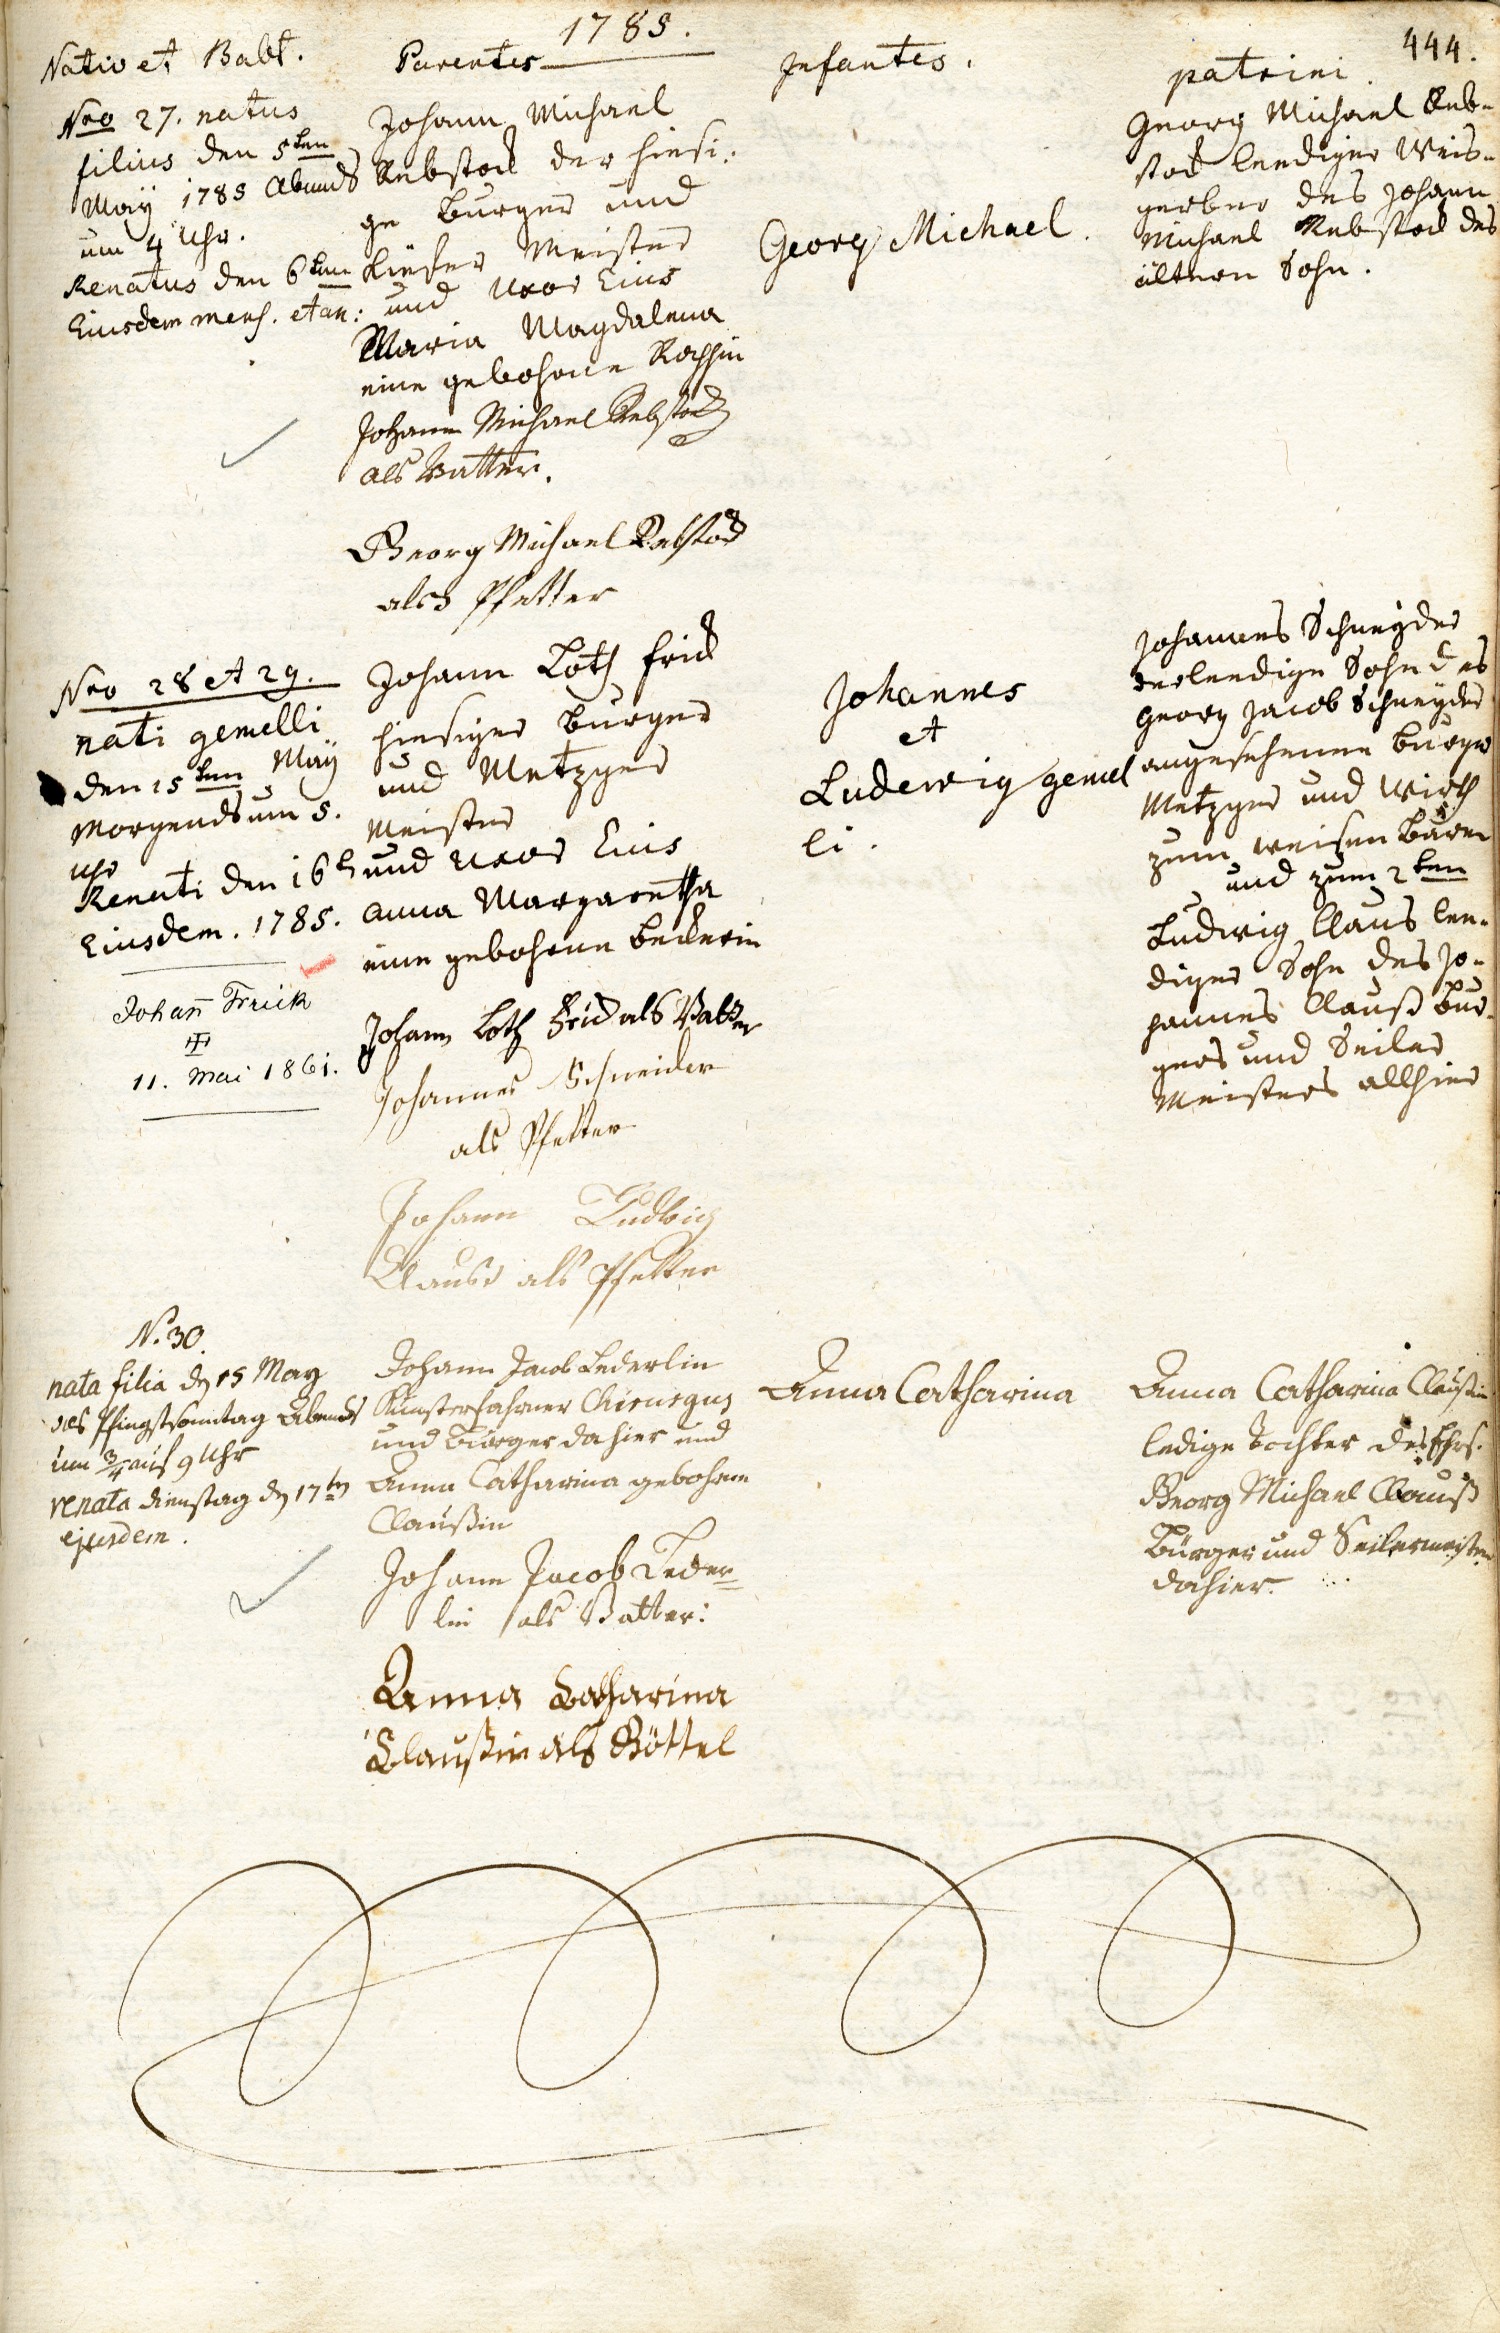 1785.
444.
Nativ et Babt.
Parentes
Infantes.
patrini.
Nro 27. natus
filius den 5ten
May 1785 Abends
um 4 Uhr.
Renatus den 6ten
Eiusdem mens. et an:
Johann Michael
Rebstock der hiesi-
ge Burger und
Kiefer Meister
und Uxor Eius
Maria Magdalena
eine gebohrne
Johann Michael Rebstock
als Vatter.
Georg Michael Rebstock
alss Pfetter
Georg Michael.
Georg Michael Reb-
stock leediger Weis-
gerber des Johann
Michael Rebstock des
ältern Sohn.
Nro 28 et 29.
nati gemelli
den 15ten May
Morgends um 5.
Uhr
Renati den 16t
Eiusdem. 1785.
Johan̄ Frick
11. Mai 1861.
Johann Loth Frick
hiesiger Burger
und Metzger
Meister
und Uxor Eius
Anna Margaretha
eine gebohrne Beckerin
Johann Loth Frick als Vatter
Johannes Schneider
als Pfetter
Johann Ludwig
Clauss als Pfetter
Johannes
et
Ludewig gemel
li.
Johannes Schneyder
der leedige Sohn des
Georg Jacob Schneyder
angesehenen Burger
Metzger und Wirth
zum weisen Bären
und zum 2ten
Ludwig Claus lee-
diger Sohn des Jo-
hannes Clauß Bur-
gers und Seiler
Meisters allhier
N. 30.
nata filia d 15 May
als Pfingstsonntag Abends
um 3/4 auf 9 Uhr
renata dienstag d 17ten
ejusdem.
Johann Jacob Lederlin
Kunsterfahrner Chirurgus
und Bürger dahier und
Anna Catharina gebohrne
Claußin
Johann Jacob Leder=
lin als Vatter:
Anna Catharina
Claußin als Göttel
Anna Catharina
Anna Catharina Claußin
ledige Tochter des Ehrs.
Georg Michael Clauß
Bürger und Seilermeister
dahier.